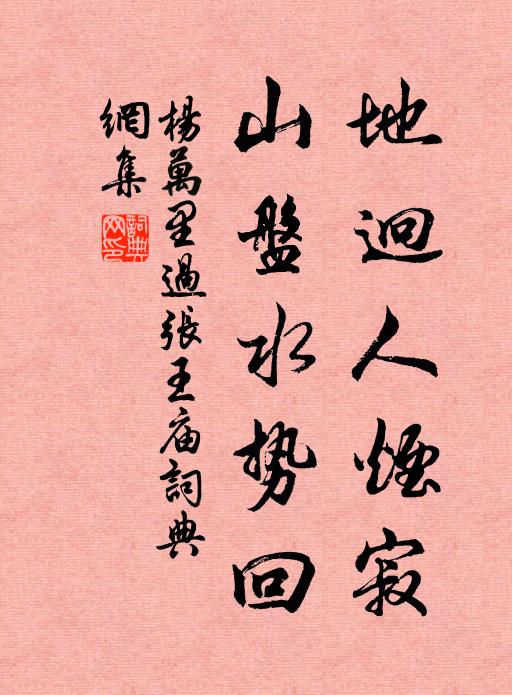 地迥人煙寂
山盤水势回
楊萬里過張王庙詞典
網集
詞典
网印